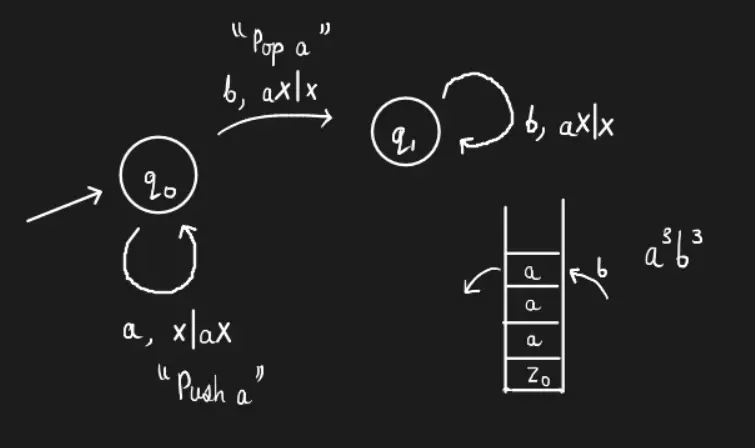 "Pop a"
b, ax|x
q₀
q₁
b, ax|x
a, x|ax
"Push a"
a
a
a
Z₀
b
a³b³